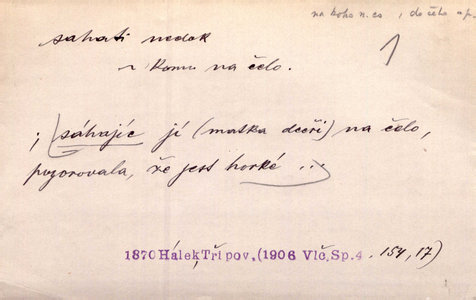 na koho n. co, do čeho a p.
sahati nedok
~ komu na čelo.
1
; sáhajíc jí (matka dceři) na čelo,
pozorovala, že jest horké ...
1870 Hálek, Tři pov. (1906 Vlč, Sp. 4. 154, 17)